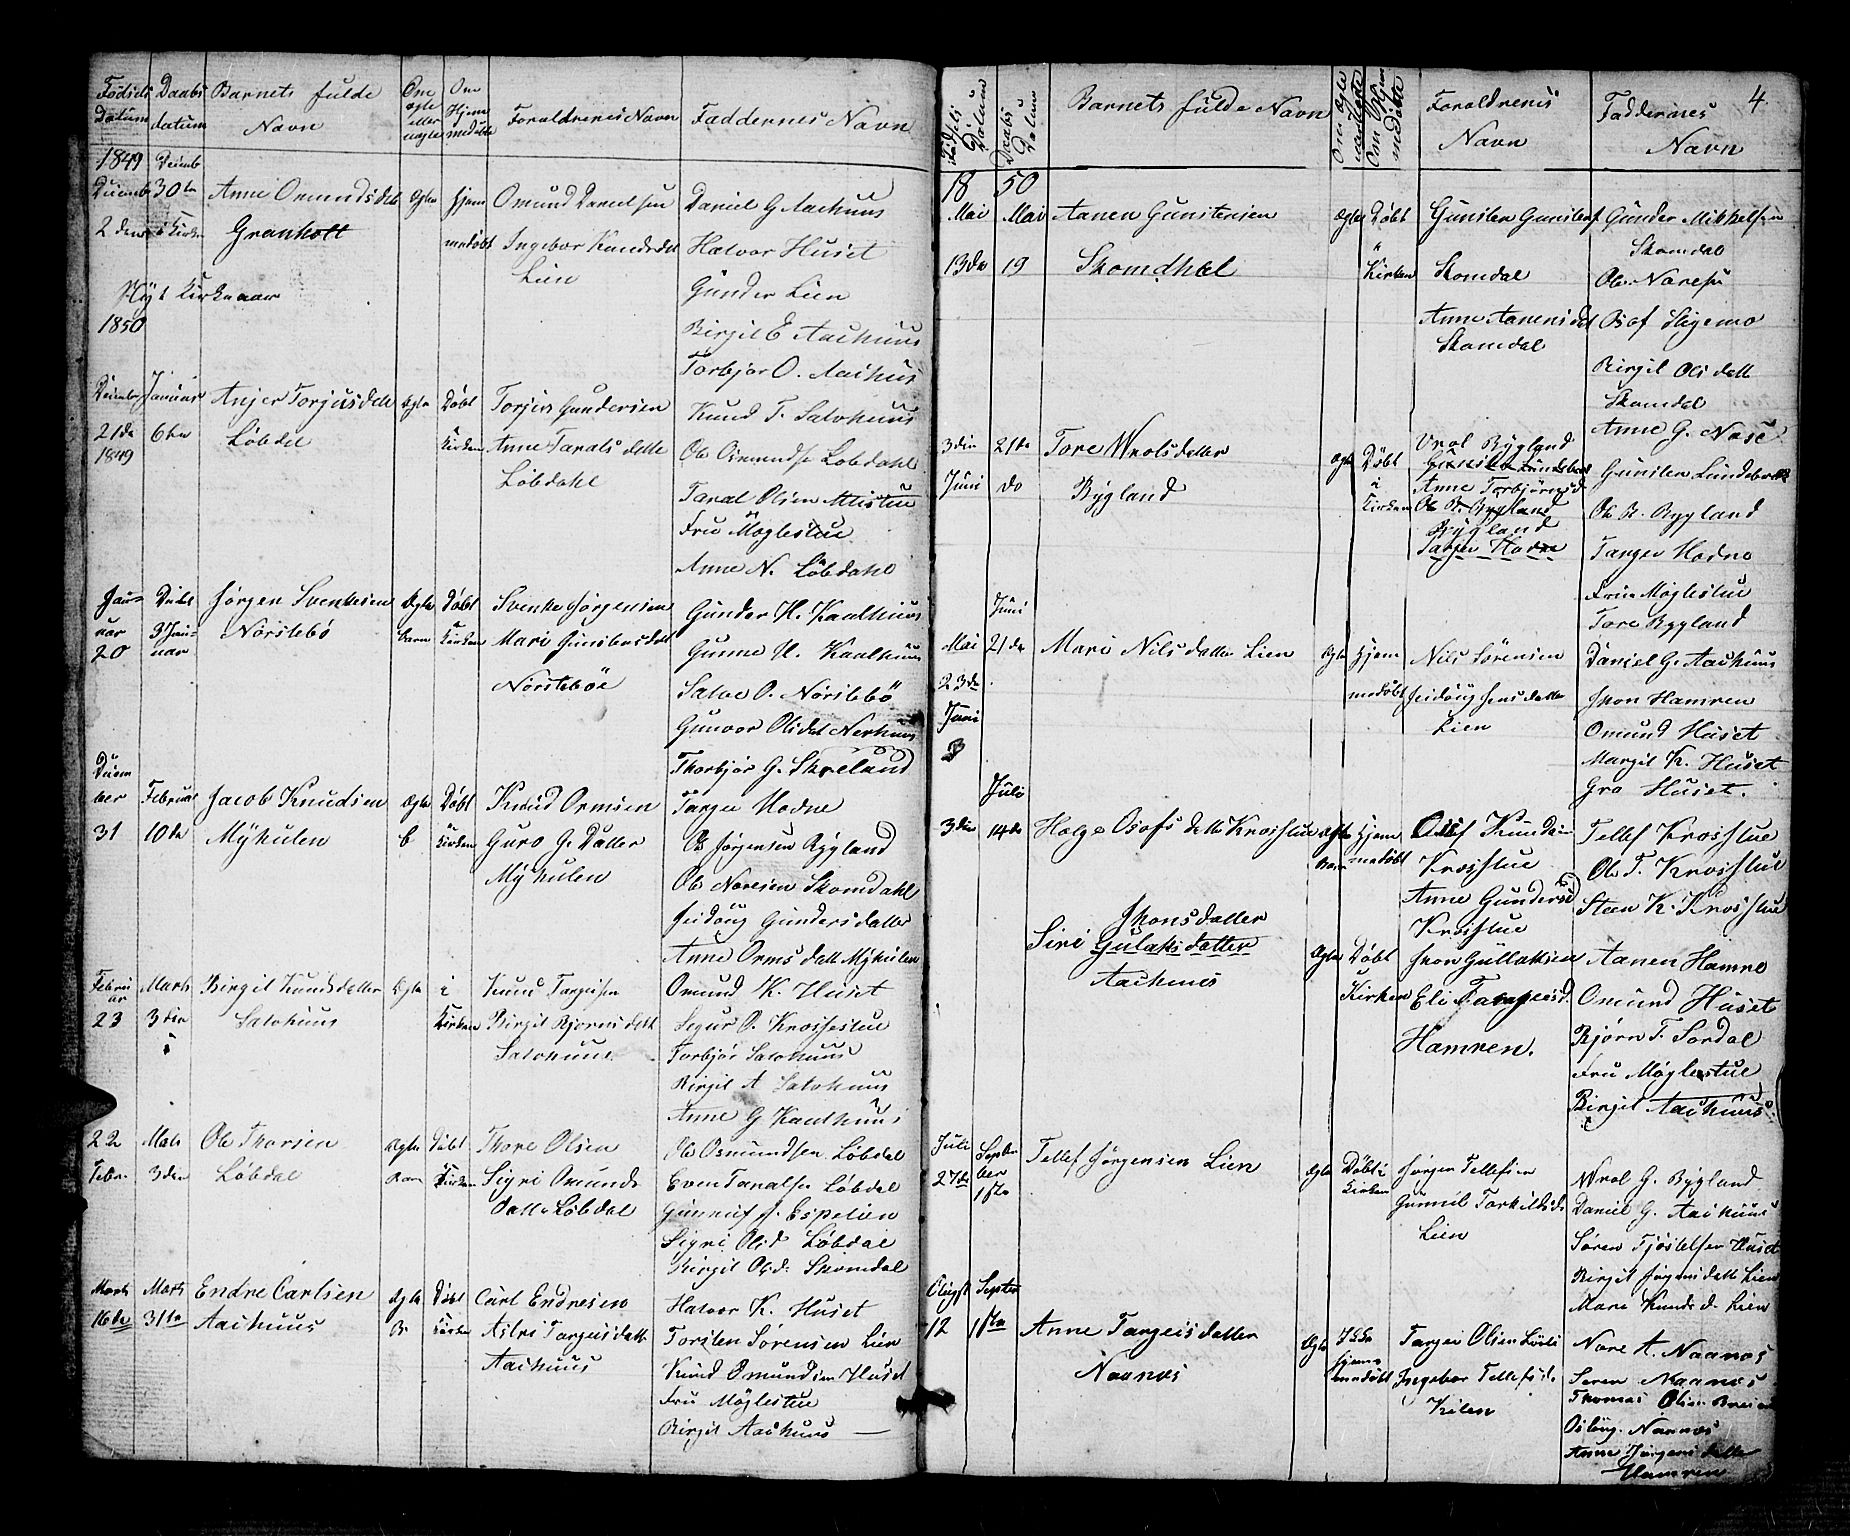 Fødsels Datum
Daabs datum
Barnets fulde Navn
Om ægte eller uægte
Om Hjemmedøbt
Foraldrenes Navn
Faddernes Navn
1849
Decemb 2den
Decemb 30te i Kirke
Anne Omundsdatt
Granholt
Ægte
Hjemmedøbt
Omund Danielsen
Ingebor Knudsdat
Lien
Daniel G Aachuus
Halvor Huset
Gunder Lien
Birgit E Aachuus
Torbjør O. Aachus
Nÿt Kirkeaar
1850
Decembr 21de 1849
Januar 6te
Anjer Torjusdatt
Løbdal
Ægte
Døbt i Kirken
Torjus Gundersen
Anne Taralsdatte
Løbdahl
Knud T. Salvhuus
Ole Osmundse Løbdahl
Taral Olsen Mistue
Fru Møglestue
Anne N. Løbdahl
Januar 20
Døbt 3 Januar
Jørgen Svenkesen
Nørstebø
Ægte Barn
Døbt i Kirken
Svenke Jørgensen
Mari Gunstensdatt
Nørstebøe
Gunder H. Kaalhuus
Gunne H. Kaalhuus
Salve O. Nørstebø
Gunvor Olsdat Nerhuus
Thorbjør G. Skreland
December 31
Februar 10de
Jacob Knudsen
Mÿkulen
Ægte B
Døbt i Kirken
Knud Ormsen
Guro G. Datter
Mÿkulen
Targe Hodne
Ole Jørgensen Bÿgland
Ole Noresen Skomdahl
Gundersdatter
Anne Ormsdatt Mÿkulen
Februar 23
Marts 3die
Birgit Knudsdatter
Salvhuus
Ægte
i Kirken
Knud Targeisen
Birgit Bjørnsdatt
Salvhuus
Omund K. Huset
Segur O. Krossestue
Torbjør Salvhuus
Birgit A Salvhuus
Anne G Kaalhuus
22 Febr.
Mats 3die
Ole Thorsen
Løbdal
Ægte Barn
Døbt i Kirken
Thore Olsen
Sigri Omunds
datte Løbdal
Ole Osmundsen Løbdal
Even Taralse Løbdal
Gunnuf J. Espelien
Sigri Olsd Løbdal
Birgit Olsd. Skomdal
Marts 16de
Marts 31te
Endre Carlsen
Aachuus
Ægte B
Døbt i Kirken
Carl Endresen
Astri Targeisdatte
Aachuus
Halvor K. Huset
Torsten Sørensen Lien
Knud Omundsen Huset
Fru Møglestue
Birgit Aachuus
4.
Fødsels Datum
Daabs Datum
Barnets fulde Navn
Om ægte uægte
Om Hjemmedøbte
Foraldrenes Navn
Faddernes Navn
1850
Mai 13de
Mai 19
Aanen Gunstensen
Skomdhal
Ægte
Døbt i Kirken
Gunsten Gunstens
Skomdal
Anne Aanensdat
Skomdal
Gunder Mikkelsen
Skomdal
Ole Norese
Osof Stigemo
Birgit Olsdatt
Skomdal
Anne G. Nase
3die Juni
21de do
Tore Wrolsdatter
Bÿgland
Ægte
Døbt i Kirken
Vrol Bÿgland
Gunsten Lundeb
Anne Torbjørnsd
Ole B. Bygland
Bÿgland
Targei Hodne
Gunsten Lundeb
Ole B. Bygland
Targei Hodne
Frue Møglestue
Tore Bygland
Mai 23de
Juni 21de
Juni
Mari Nilsdatter Lien
Ægte
Hjemmedøbt
Nils Sørensen
Jensdatter
Lien
Daniel G. Aachuus
Jhon Hamren
Omund Huset
Margit K. Huset
Gro Huset.
3die
Juli 14de
Helge Osofsdatte Krosstue
Ægte Barn
Hjemmedøbt
Osof Knudsen
Krosstue
Anne Gundersd
Krosstue
Tellef Krosstue
Ole T. Krosstue
Steen K. Krosstue
Siri
Jhonsdatter
Gulaksdatter
Aachuus
Ægte
Døbt i Kirken
Jhon Gullaksen
Eli Targeisd.
Hamren.
Aanen Hamre
Omund Huset
Bjørn T. Sordal
Fru Møglestue
Birgit Aachuus
Juli 27de
September 1ste
Tellef Jørgensen Lien
Ægte
Døbt i Kirken
Jørgen Tellefsen
Gunnil Torkildsd.
Lien
Wrol G. Bÿgland
Daniel G. Aachuus
Søren Tjøstelsen Huset
Birgit Jørgensdatt Lien
Mari Knuds d. Lien
August 12
Septer 1ste
Anne Targeisdatter
Naanes
Ægte
Hjemmedøbt
Targei Olsen
Ingebor Tellefsd.
Kilen
Nore A. Naanes
Seren Naanes
Thomas Olsen
Naanes
Anne Jørgensdatte
Hamren